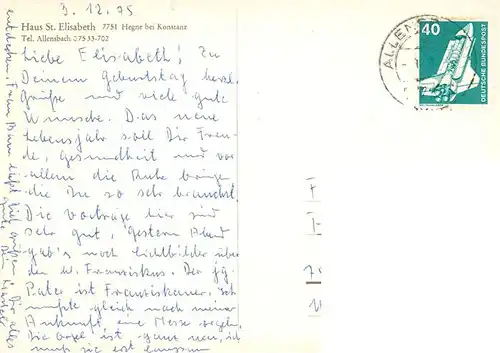 3. 12. 75
Haus St. Elisabeth 7751 Hegne bei Konstanz
Tel. Allensbach 07533-702
Liebe Elisabeth! Zu
Deinem Geburtstag herzl.
Grüße und viele gute
Wünsche. Das neue
Lebensjahr soll Dir Freu-
de, Gesundheit und vor
allem die Ruhe bringen
die Du so sehr brauchst.
Die Vorträge hier sind
sehr gut, gestern Abend
gab's noch Lichtbilder über
den hl. Franziskus. Der jg.
Pater ist Franziskaner. Ich
mußte gleich nach meiner
Ankunft, eine Messe orgeln,
Die Orgel ist ganz neu, ich
muß sie erst
entdecken. Frau läßt grüßen! Dir alles
gute Dein
ALLENSB
40
DEUTSCHE BUNDESPOST